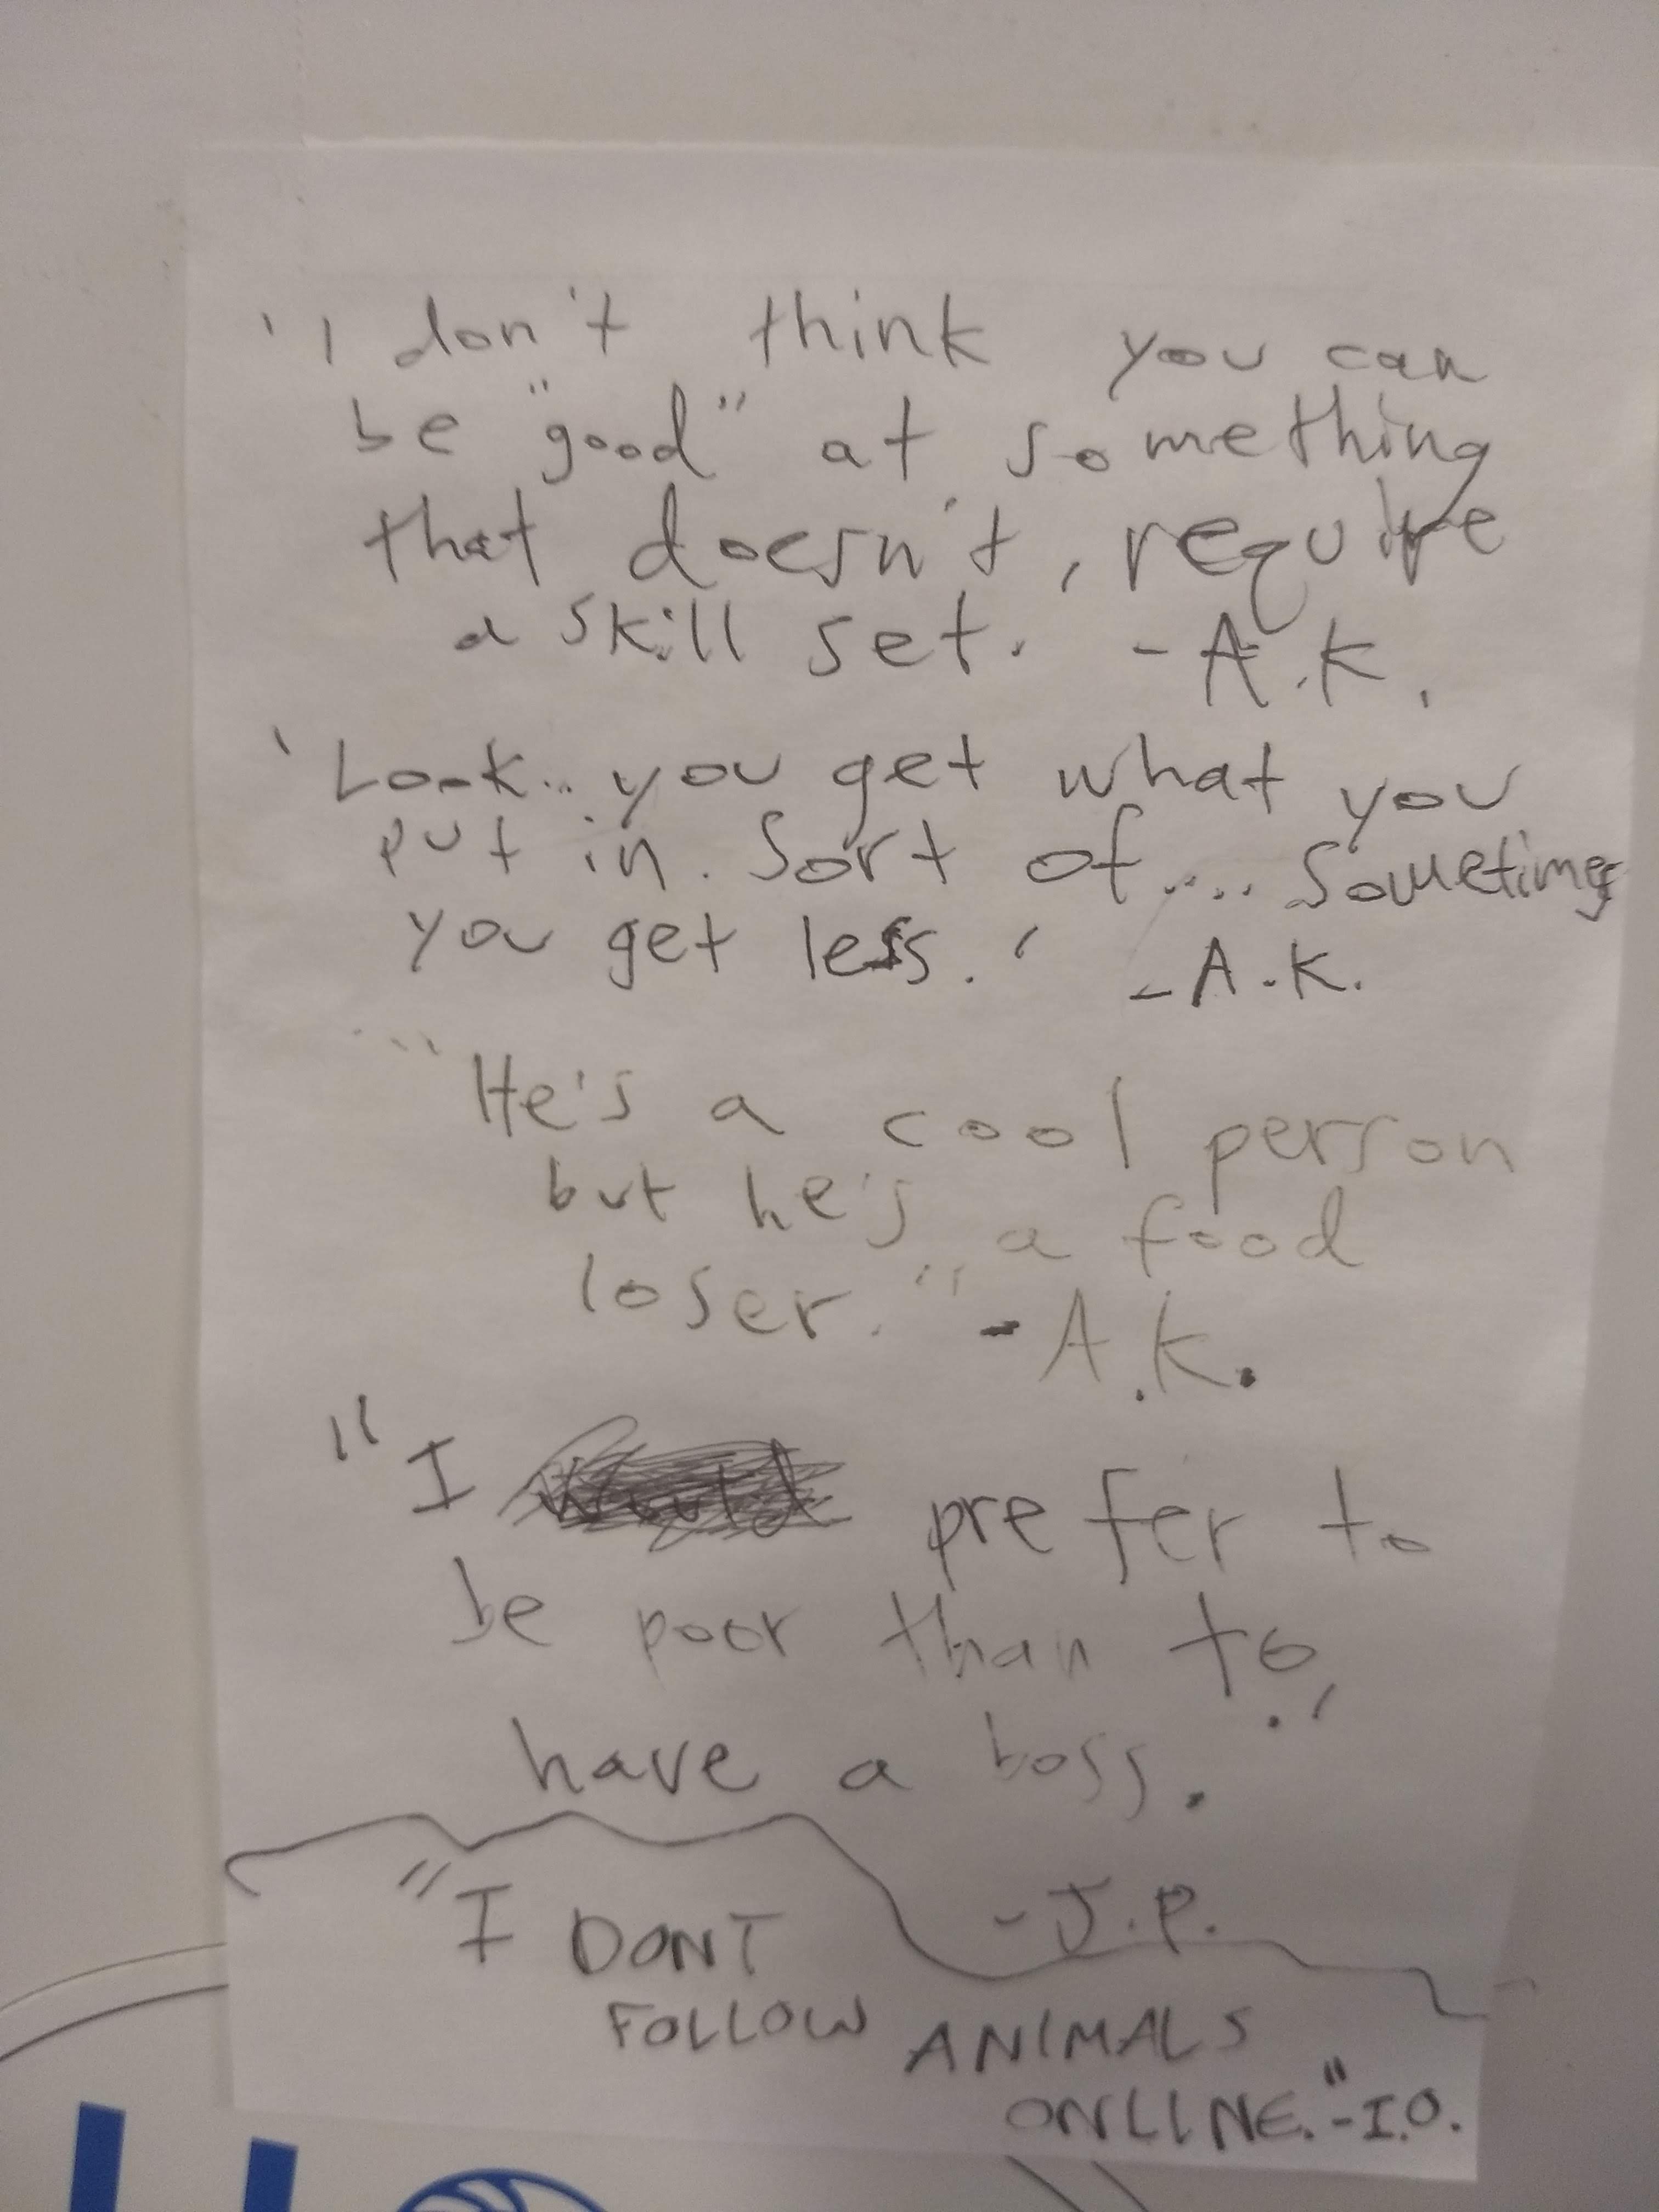 ' I don't think you can
be "good" at something
that doesn't, require
a skill set. - A.K.
' Look.. you get what you
put in. Sort of.... Sometimes
you get less. ' - A.K.
"He's a cool person
but he's a food
loser." - A.K.
"I prefer to
be poor than to
have a boss.
- J.P.
"I DONT
FOLLOW ANIMALS
ONLINE." - I.O.